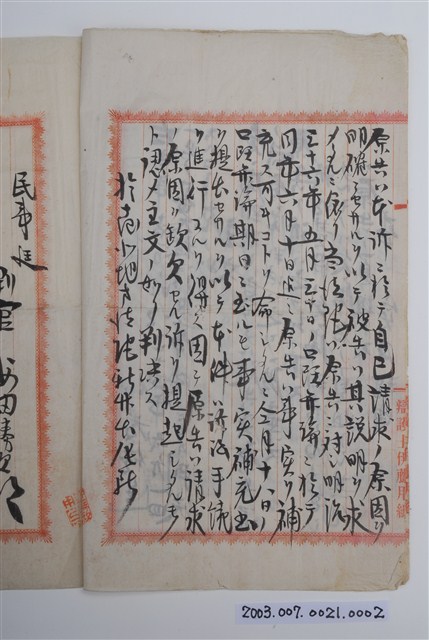 原告ハ本訴ニ於テ自己請求ノ原因ヲ
明確ニセサルヲ以テ被告ハ其説明ヲ求
メタルニ依リ当法院ハ原告ニ対シ明治
三十六年五月三十日ノ口頭弁論ニ於テ
同年六月十日迄ニ原告ハ事実ヲ補
充ス可キコトヲ命シタルニ今月十八日ノ
口頭弁論期日ニ至ルモ事実補充書
ヲ提出セサルヲ以テ本件ハ訴訟手続
ヲ進行スルヲ得ス因テ原告ハ請求
ノ原因ヲ欠クセル訴ヲ提起シタルモノ
ト認メ主文ノ如ク判決ス
於台北地方法院新竹出張所
民事廷
判官 安田
弁護士伊藤用紙
2003.007.0021.0002